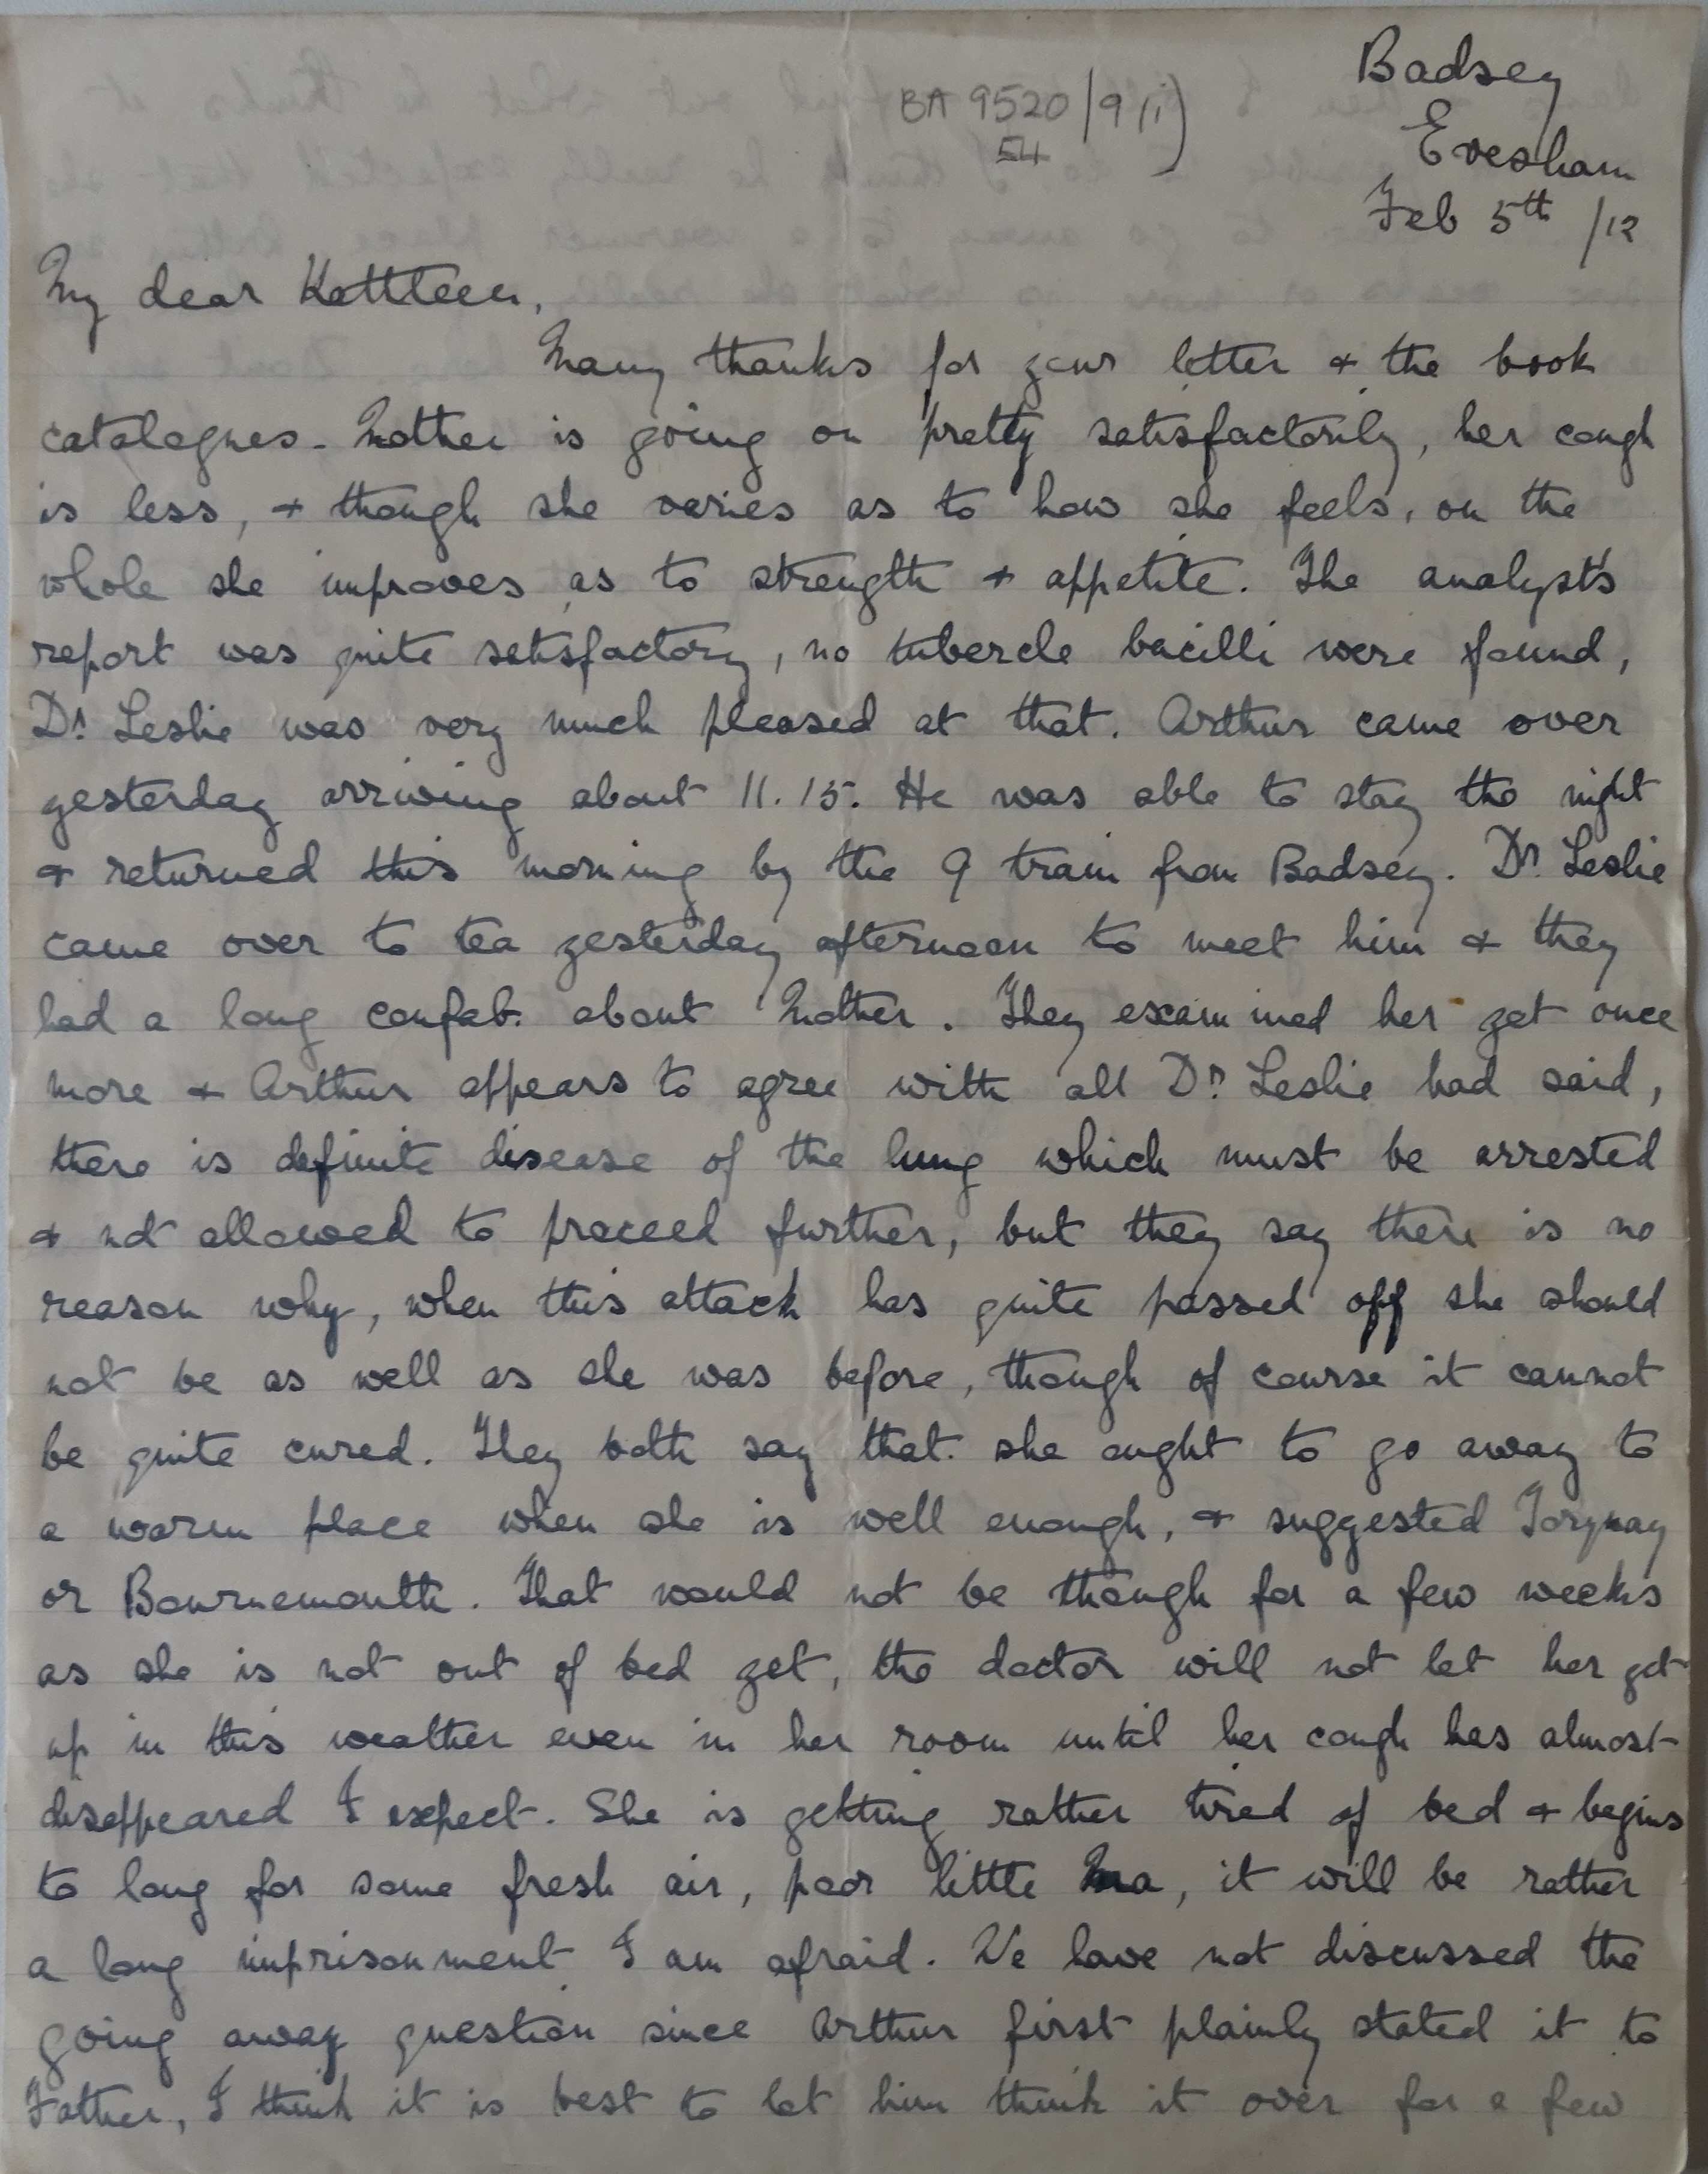 Badsey
BA 9520/9(i)
Evesham
54
Feb 5th /12
My dear Kathleen,
Many thanks for your letter & the book
catalogues. Mother is going on pretty satisfactorily, her cough
is less, & though she varies as to how she feels, on the
whole she improves as to strength & appetite. The analyst's
report was quite satisfactory, no tubercle bacilli were found,
Dr. Leslie was very much pleased at that. Arthur came over
yesterday arriving about 11.15. He was able to stay the night
& returned this morning by the 9 train from Badsey. Dr. Leslie
came over to tea yesterday afternoon to meet him & they
had a long confab. about Mother. They examined her yet once
more & Arthur appears to agree with all Dr. Leslie had said,
there is definite disease of the lung which must be arrested
& not allowed to proceed further, but they say there is no
reason why, when this attack has quite passed off she should
not be as well as she was before, though of course it cannot
be quite cured. They both say that she ought to go away to
a warm place when she is well enough, & suggested Torquay
or Bournemouth. That would not be though for a few weeks
as she is not out of bed yet, the doctor will not let her get
up in this weather even in her room until her cough has almost
disappeared I expect. She is getting rather tired of bed & begins
to long for some fresh air, poor little Ma, it will be rather
a long imprisonment I am afraid. We have not discussed the
going away question since Arthur first plainly stated it to
Father, I think it is best to let him think it over for a few